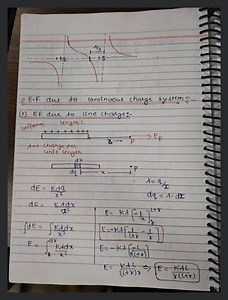 E.F due to continuous charge system :
(1) EF due to Line charge:-
uniform length: L
P
λ = charge per
unit length
dx
x
P
λ = q/L
dq = λ dx
dE = Kdq/x²
dE = Kλdx/x²
∫dE = ∫Kλdx/x²
E = Kλdx/x²
E = Kλ [-1/x]
E = -Kλ [1/(L+r) - 1/r]
E = -Kλ [-L/r(L+r)]
E = KλL/(L+r)r ⇒ E = KλL/r(L+r)